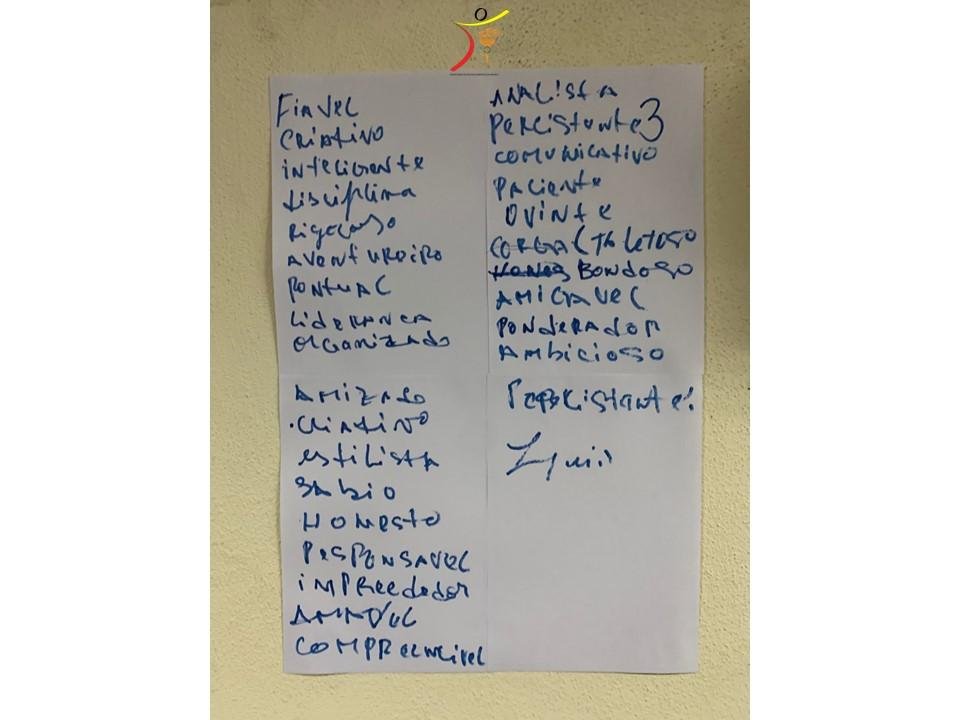 Fiavel
Criativo
inteligente
disciplina
Rigoroso
aventureiro
Pontual
Liderança
organizado
Analista
Percistente 3
Comunicativo
Paciente
Ovinte
Taletoso
Bondoso
Amigavel
Ponderador
Ambicioso
Amizado
Criativo
estilista
Sabio
Homesto
Responsavel
impreededor
Amavel
Compreencivel